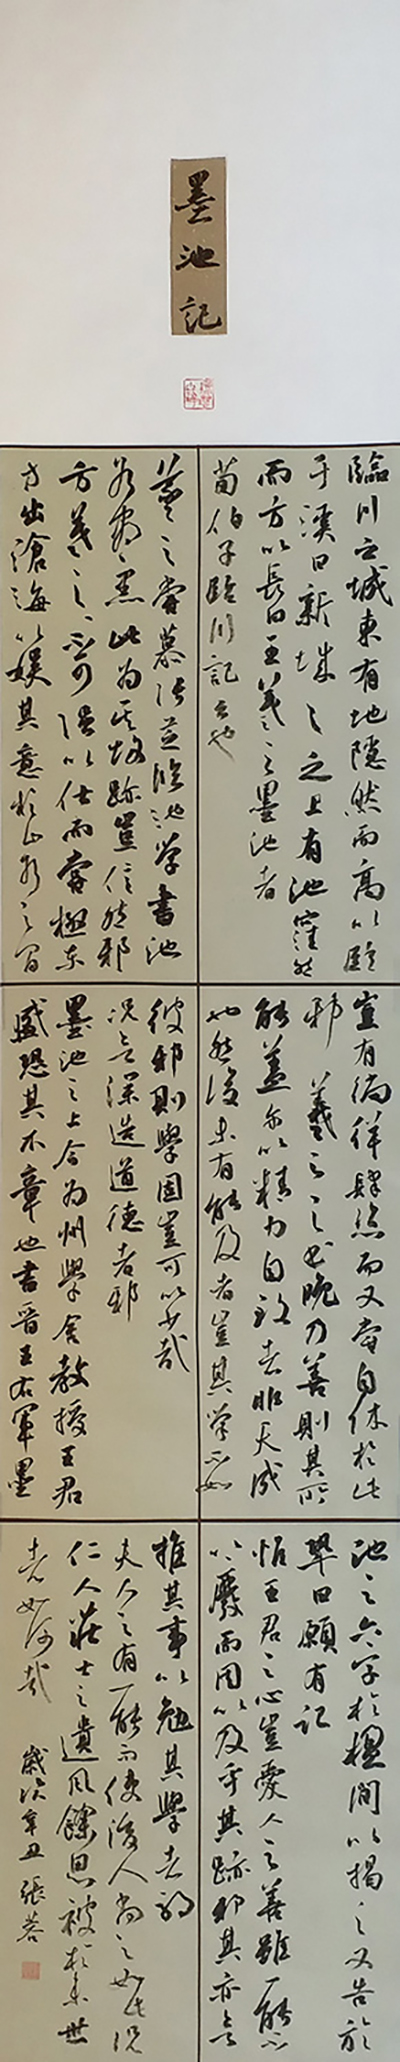 墨池記
臨川之城東有地隱然而高以臨
于溪曰新城〻之上有池窪然
而方以長曰王羲之〻墨池者
荀伯子臨川記云也
羲之嘗慕張芝臨池學書池
水盡黑此為其故跡豈信然邪
方羲之〻不可強以仕而嘗極東
方出滄海以娛其意於山水之間
豈有徜徉肆恣而又嘗自休於此
邪 羲之〻書晚乃善則其所
能蓋亦以精力自致者非天成
也然後未有能及者豈其學不如
彼邪則學固豈可以少哉
況欲深造道德者邪
墨池之上今為州學舍教授王君
盛恐其不章也書晉王右軍墨
池之六字於楹間以揭之又告於
鞏曰願有記
惟王君之心豈愛人之善雖一能不
以廢而因以及乎其跡邪其亦欲
推其事以勉其學者邪
夫人之有一能而使後人尚之如此況
仁人莊士之遺風餘思被於來世
者如何哉 歲次辛丑 張蓉